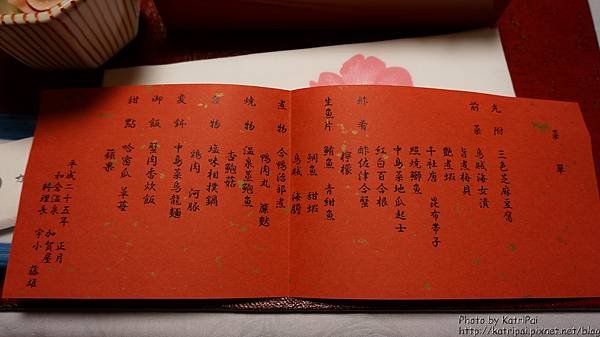 菜單
先附 三色芝麻豆腐
前菜 烏賊海女漬
旨煮梅貝
艷煮蝦
千社唐 昆布帶子
照燒鰤魚
中島菜地瓜起士
紅白百合根
酢肴 酢佐津合蟹
檸檬
生魚片 鮪魚 青甜魚
鯛魚 甜蝦
烏賊 海膽
煮物 合鴨治部煮
鴨肉丸 簾麩
燒物 溫泉蒸鮑魚
杏鮑菇
台物 塩味相撲鍋
雞肉 河豚
麦鉢 中島菜烏龍麵
御飯 蟹肉香炊飯
甜點 哈密瓜 草莓
蘋果
平成二十五年 正月
和倉溫泉 加賀屋
料理長 宇小藤雄
Photo by KatriPai
http://katripai.pixnet.net/blog